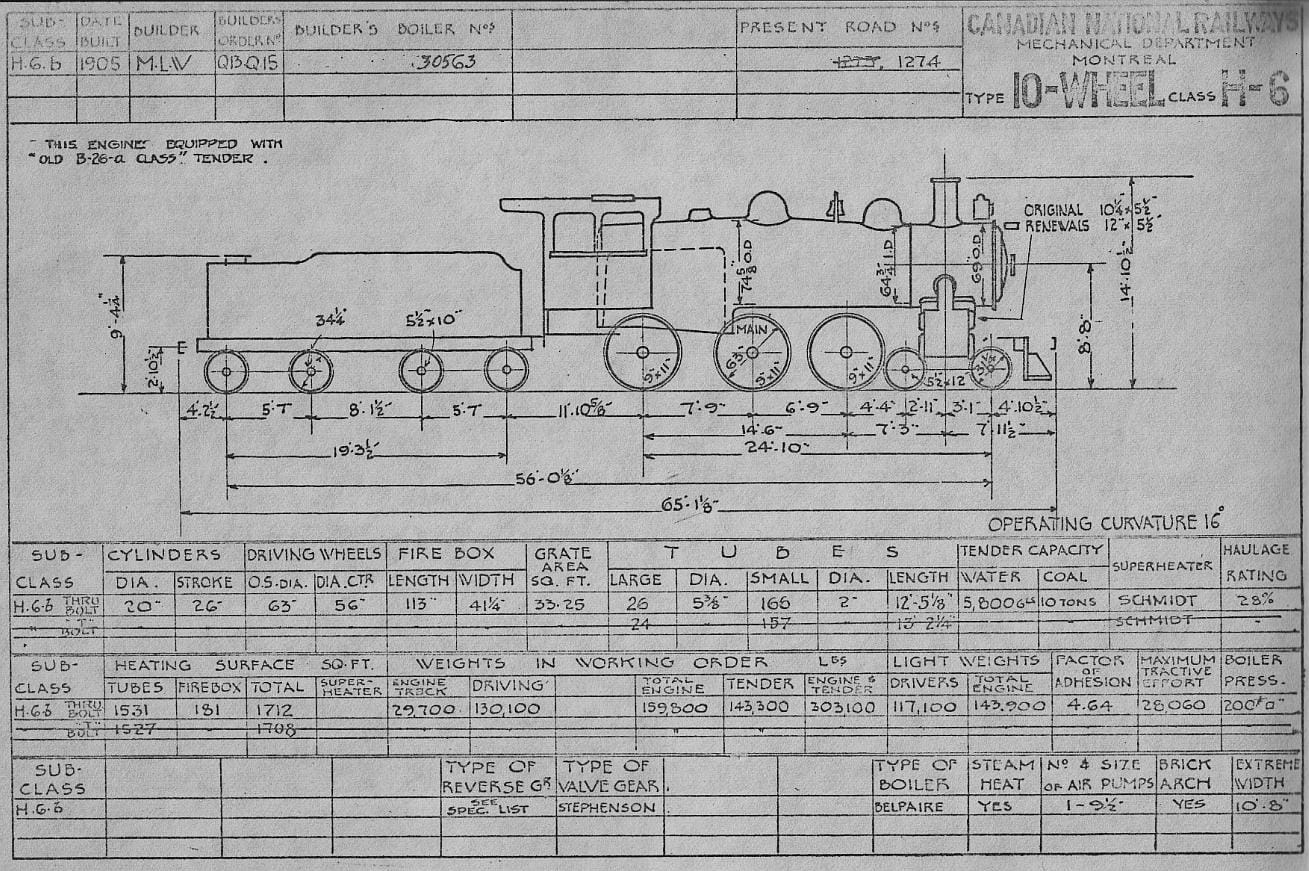 SUB- DATE BUILDER BUILDERS BUILDER'S BOILER Nos PRESENT ROAD Nos CANADIAN NATIONAL RAILWAYS
CLASS BUILT ORDER No MECHANICAL DEPARTMENT
H.6.b 1905 M.L.W Q13-Q15 30563 1273, 1274 MONTREAL
TYPE 10-WHEEL CLASS H-6
THIS ENGINE EQUIPPED WITH
"OLD B-26-a CLASS" TENDER.
ORIGINAL 10¼"×5½"
RENEWALS 12"×5½"
74⅝" O.D
64¾" I.D
69" O.D
14'-10½"
9'-4¼"
34¼" 5½"×10"
MAIN
63"
9"×11" 9"×11" 9"×11"
8'-8"
2'-10½"
5½"×12"
31¼"
4'-2½" 5'-7" 8'-1½" 5'-7" 11'-10⅝" 7'-9" 6'-9" 4'-4" 2'-11" 3'-1" 4'-10½"
14'-6" 7'-3" 7'-11½"
19'-3½" 24'-10"
56'-0⅛"
65'-1⅛"
OPERATING CURVATURE 16°
SUB- CYLINDERS DRIVING WHEELS FIRE BOX GRATE AREA SQ. FT. TUBES TENDER CAPACITY SUPERHEATER HAULAGE
CLASS DIA. STROKE O.S.DIA. DIA.CTR LENGTH WIDTH LARGE DIA. SMALL DIA. LENGTH WATER COAL RATING
H.6.b THRU BOLT 20" 26" 63" 56" 113" 41¼" 33.25 26 5⅜" 166 2" 12'-5⅛" 5,800 Gls 10 TONS SCHMIDT 28%
" "T" BOLT 24 157 13'-2¼" SCHMIDT
SUB- HEATING SURFACE SQ.FT. WEIGHTS IN WORKING ORDER LBS LIGHT WEIGHTS FACTOR OF ADHESION MAXIMUM TRACTIVE EFFORT BOILER PRESS.
CLASS TUBES FIREBOX TOTAL SUPER-HEATER ENGINE TRUCK DRIVING TOTAL ENGINE TENDER ENGINE & TENDER DRIVERS TOTAL ENGINE
H.6.b THRU BOLT 1531 181 1712 29,700 130,100 159,800 143,300 303100 117,100 143,900 4.64 28,060 200#□"
"T" BOLT 1527 1708 " "
SUB- TYPE OF TYPE OF TYPE OF STEAM No & SIZE BRICK EXTREME
CLASS REVERSE GR VALVE GEAR BOILER HEAT OF AIR PUMPS ARCH WIDTH
H.6.b SEE SPEC. LIST STEPHENSON BELPAIRE YES 1-9½" YES 10'-8"